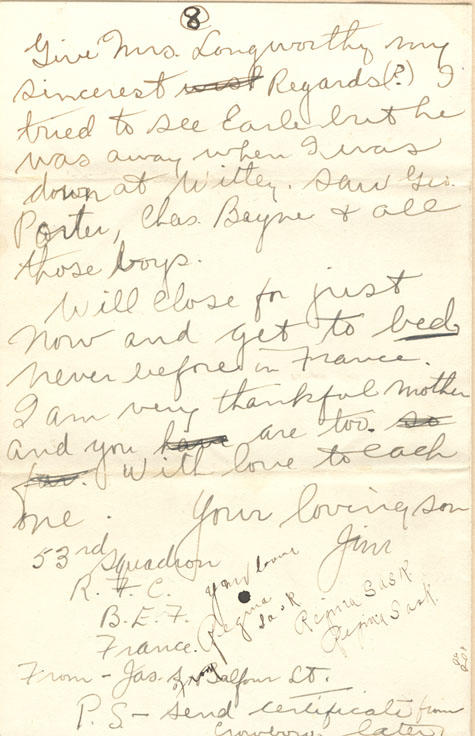 8
Give Mrs. Longworthy my
sincerest wish Regards(?) I
tried to see Earle but he
was away when I was
down at Witley. Saw Geo.
Porter, Chas. Bayne & all
those boys.
Will close for just
now and get to bed
never before in France.
I am very thankful mother
and you have are too. so
far. With love to each
one. Your loving son
Jim
53rd Squadron
R. F. C.
B. E. F.
France.
Your loving
Regina Sask
Regina Sask
Regina Sask.
From - Jas. Balfour Lt.
from
P.S - Send certificate from
Crowboro later